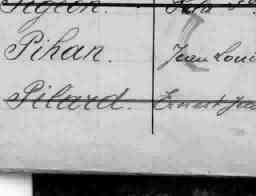 Pihan. Jean Loui
Pilard. Ernest Jea